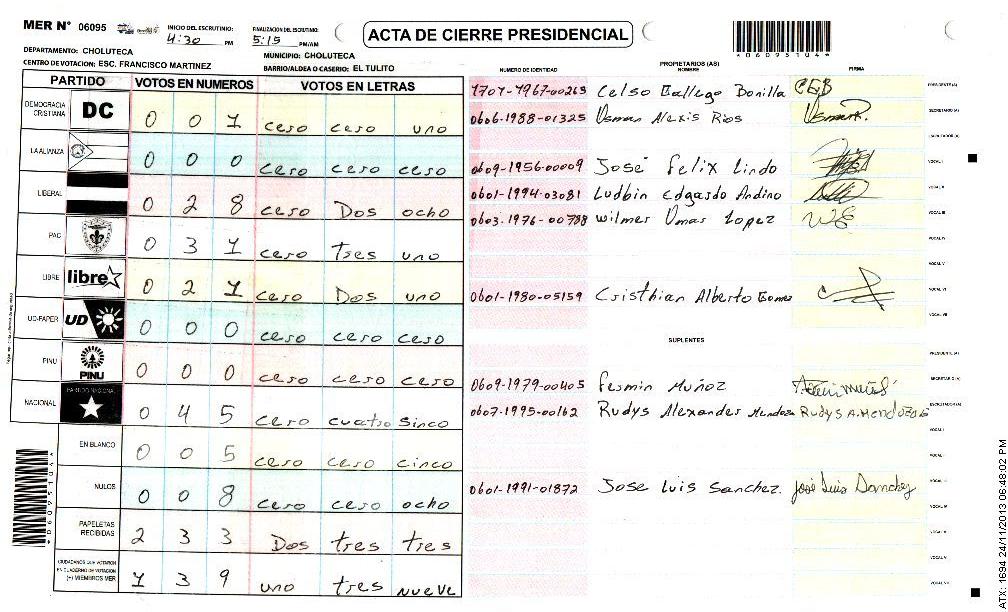 MER N° 06095
INICIO DEL ESCRUTINIO: 4:30 PM
FINALIZACION DEL ESCRUTINIO: 5:15 PM/AM
ACTA DE CIERRE PRESIDENCIAL
*06095104*
DEPARTAMENTO: CHOLUTECA
MUNICIPIO: CHOLUTECA
CENTRO DE VOTACION: ESC. FRANCISCO MARTINEZ
BARRIO/ALDEA O CASERIO: EL TULITO
PARTIDO VOTOS EN NUMEROS VOTOS EN LETRAS
DEMOCRACIA CRISTIANA DC 0 0 1 cero cero uno
LA ALIANZA 0 0 0 cero cero cero
LIBERAL 0 2 8 cero Dos ocho
PAC 0 3 1 cero tres uno
LIBRE libre 0 2 1 cero Dos uno
UD-FAPER UD 0 0 0 cero cero cero
PINU PINU 0 0 0 cero cero cero
NACIONAL PARTIDO NACIONAL 0 4 5 cero cuatro sinco
EN BLANCO 0 0 5 cero cero cinco
NULOS 0 0 8 cero cero ocho
PAPELETAS RECIBIDAS 2 3 3 Dos tres tres
CIUDADANOS QUE VOTARON EN CUADERNO DE VOTACION (+) MIEMBROS MER 1 3 9 uno tres nueve
NUMERO DE IDENTIDAD PROPIETARIOS (AS) NOMBRE FIRMA
1707-1967-00263 Celso Gallego Bonilla CGB PRESIDENTE (A)
0606-1988-01325 Usman Alexis Rios SECRETARIO (A)
ESCRUTADOR (A)
0609-1956-00009 José Felix Lindo VOCAL I
0601-1994-03081 Ludbin Edgardo Andino VOCAL II
0603-1976-00788 Wilmer Omar Lopez VOCAL III
VOCAL IV
VOCAL V
0601-1980-05159 Cristhian Alberto Gomez VOCAL VI
VOCAL VII
SUPLENTES
PRESIDENTE (A)
0609-1979-00405 Fermin Muñoz SECRETARIO (A)
0607-1995-00162 Rudys Alexander Mendoza Rudys A. Mendoza ESCRUTADOR (A)
VOCAL I
VOCAL II
0601-1991-01872 Jose Luis Sanchez. José Luis Sanchez
VOCAL IV
VOCAL V
VOCAL VI
VOCAL VII
*06095104*
ATX: 1694 24/11/2013 06:48:02 PM